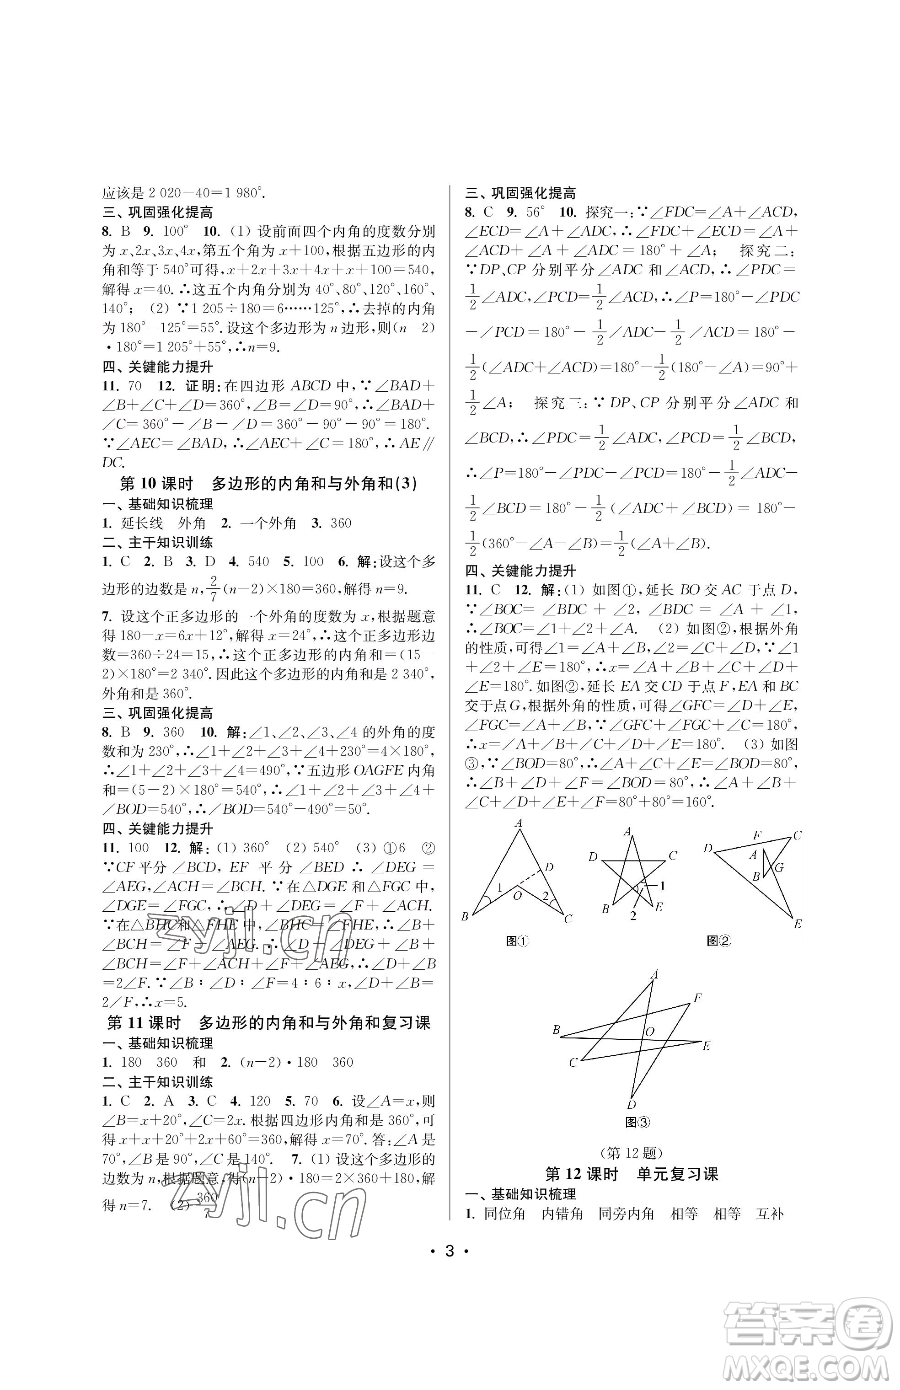 应该是 2 020－40＝1 980°.
三、巩固强化提高
8. B 9. 100° 10. (1) 设前面四个内角的度数分别
为 x、2x、3x、4x,第五个角为 x＋100,根据五边形的内
角和等于 540°可得, x＋2x＋3x＋4x＋x＋100＝540,
解得 x＝40.∴这五个内角分别为 40°、80°、120°、160°、
140°; (2) ∵1 205÷180＝6……125°,∴去掉的内角
为 180° 125°＝55°.设这个多边形为 n 边形,则(n 2)
•180°＝1 205°＋55°,∴n＝9.
四、关键能力提升
11. 70 12. 证明:在四边形 ABCD 中,∵∠BAD＋
∠B＋∠C＋∠D＝360°,∠B＝∠D＝90°,∴∠BAD＋
∠C＝360°－∠B－∠D＝360°－90°－90°＝180°.
∵∠AEC＝∠BAD,∴∠AEC＋∠C＝180°.∴AE∥
DC.
第 10 课时 多边形的内角和与外角和(3)
一、基础知识梳理
1. 延长线 外角 2. 一个外角 3. 360
二、主干知识训练
1. C 2. B 3. D 4. 540 5. 100 6. 解:设这个多
边形的边数是 n, 2/7 (n－2)×180＝360,解得 n＝9.
7. 设这个正多边形的一个外角的度数为 x,根据题意
得 180－x＝6x＋12,解得 x＝24°,∴这个正多边形边
数＝360÷24＝15,∴这个正多边形的内角和＝(15
2)×180°＝2 340°.因此这个多边形的内角和是 2 340°,
外角和是 360°.
三、巩固强化提高
8. B 9. 360 10. 解:∵∠1、∠2、∠3、∠4 的外角的度
数和为 230°,∴∠1＋∠2＋∠3＋∠4＋230°＝4×
180°,∴∠1＋∠2＋∠3＋∠4＝490°,∵五边形 OAGFE 内角
和＝(5－2)×180°＝540°,∴∠1＋∠2＋∠3＋∠4＋
∠BOD＝540°,∴∠BOD＝540°－490°＝50°.
四、关键能力提升
11. 100 12. 解: (1) 360° (2) 540° (3) ①6 ②
∵CF 平分∠BCD, EF 平分∠BED ∴∠DEG＝
∠AEG,∠ACH＝∠BCH.∵在△DGE 和△FGC 中,
∠DGE＝∠FGC,∴∠D＋∠DEG＝∠F＋∠ACH.
∵在△BHC 和△FHE 中,∠BHC＝∠FHE,∴∠B＋
∠BCH＝∠F＋∠AEG,∴∠D＋∠DEG＋∠B＋
∠BCH＝∠F＋∠ACH＋∠F＋∠AEG,∴∠D＋∠B
＝2∠F.∵∠B∶∠D∶∠F＝4∶6∶x,∴x＝5.
第 11 课时 多边形的内角和与外角和复习课
一、基础知识梳理
1. 180 360 和 2. (n－2)•180 360
二、主干知识训练
1. C 2. A 3. C 4. 120 5. 70 6. 设∠A＝x,则
∠B＝x＋20°,∠C＝2x.根据四边形内角和是 360°,可
得 x＋x＋20°＋2x＋60°＝360,解得 x＝70°.答:∠A
＝70°,∠B＝90°,∠C＝140°. 7. (1) 设这个多边形的
边数为 n,根据题意,得(n－2)•180＝2×360＋180,解
得 n＝7. (2) 360/7
三、巩固强化提高
8. C 9. 56° 10. 探究一:∵∠FDC＝∠A＋∠ACD,
∠ECD＝∠A＋∠ADC,∴∠FDC＋∠ECD＝∠A＋
∠ACD＋∠A＋∠ADC＝180°＋∠A; 探究二:
∵DP、CP 分别平分∠ADC 和∠ACD,∴∠PDC＝
1/2∠ADC,∠PCD＝1/2∠ACD,∴∠P＝180°－∠PDC
－∠PCD＝180－1/2∠ADC－1/2∠ACD＝180°－
1/2(∠ADC＋∠ACD)＝180°－1/2(180°－∠A)＝90°＋
1/2∠A; 探究三:∵DP、CP 分别平分∠ADC 和
∠BCD,∴∠PDC＝1/2∠ADC,∠PCD＝1/2∠BCD,
∴∠P＝180°－∠PDC－∠PCD＝180°－1/2∠ADC－
1/2∠BCD＝180°－1/2(∠ADC＋∠BCD)＝180°－
1/2(360°－∠A－∠B)＝1/2(∠A＋∠B).
四、关键能力提升
11. C 12. 解: (1) 如图①,延长 BO 交 AC 于点 D,
∵∠BOC＝∠BDC＋∠2,∠BDC＝∠A＋∠1,
∴∠BOC＝∠1＋∠2＋∠A. (2) 如图②,根据外角
的性质,可得∠1＝∠A＋∠B,∠2＝∠C＋∠D.∵∠1
＋∠2＋∠E＝180°,∴x＝∠A＋∠B＋∠C＋∠D＋
∠E＝180°.如图②,延长 EA 交 CD 于点 F, EA 和 BC
交于点 G,根据外角的性质,可得∠GFC＝∠D＋∠E,
∠FGC＝∠A＋∠B.∵∠GFC＋∠FGC＋∠C＝180°,
∴x＝∠A＋∠B＋∠C＋∠D＋∠E＝180°. (3) 如图
③,∵∠BOD＝80°,∴∠A＋∠C＋∠E＝∠BOD＝80°,
∴∠B＋∠D＋∠F＝∠BOD＝80°,∴∠A＋∠B＋
∠C＋∠D＋∠E＋∠F＝80°＋80°＝160°.
A
D
1
O
2
B
C
图①
A
D
C
1
B
2
E
D
F
C
A
G
B
E
图②
A
F
B
O
E
C
D
图③
(第 12 题)
第 12 课时 单元复习课
一、基础知识梳理
1. 同位角 内错角 同旁内角 相等 相等 互补
• 3 •
zyjl.cn
zyjl.cn
答案圈
MXQE.COM